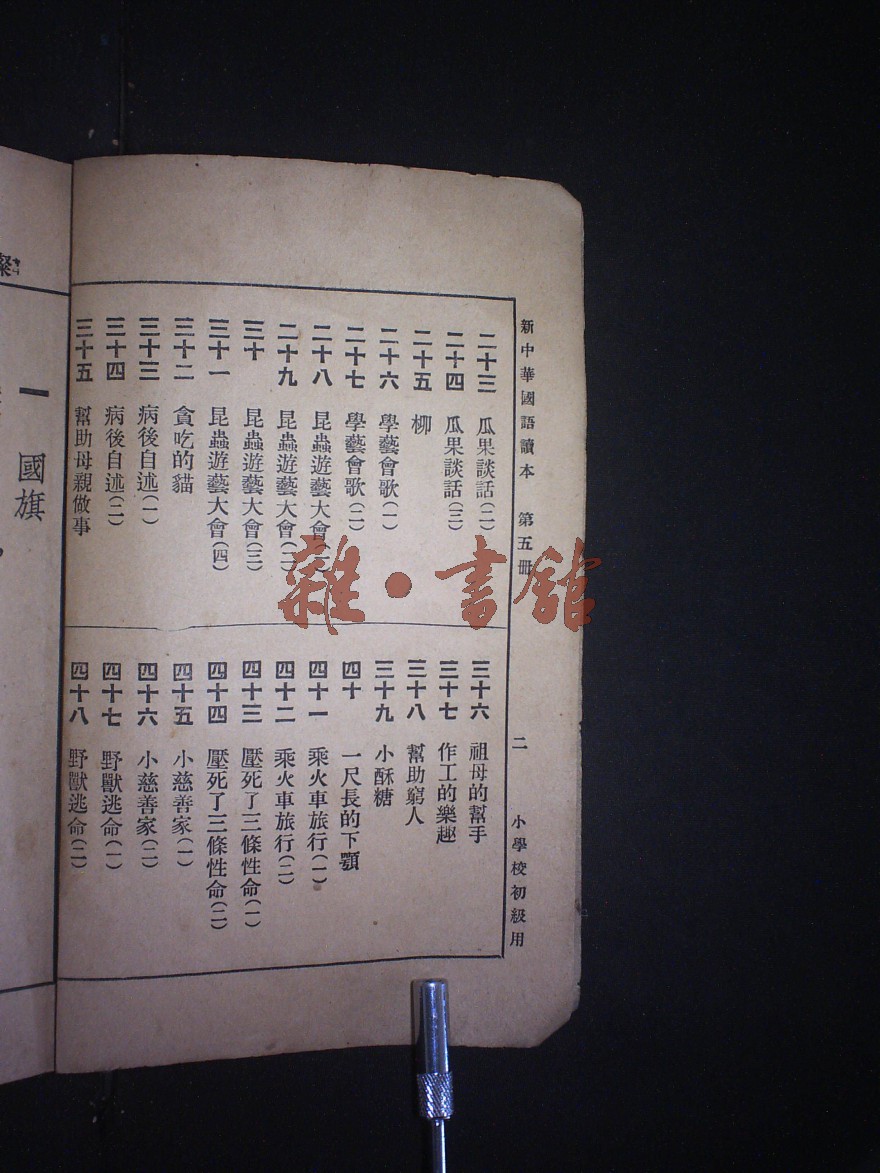 新中華國語讀本 第五冊 二 小學校初級用
二十三 瓜果談話(二)
二十四 瓜果談話(三)
二十五 柳
二十六 學藝會歌(一)
二十七 學藝會歌(二)
二十八 昆蟲遊藝大會(一)
二十九 昆蟲遊藝大會(二)
三十 昆蟲遊藝大會(三)
三十一 昆蟲遊藝大會(四)
三十二 貪吃的貓
三十三 病後自述(一)
三十四 病後自述(二)
三十五 幫助母親做事
三十六 祖母的幫手
三十七 作工的樂趣
三十八 幫助窮人
三十九 小酥糖
四十 一尺長的下顎
四十一 乘火車旅行(一)
四十二 乘火車旅行(二)
四十三 壓死了三條性命(一)
四十四 壓死了三條性命(二)
四十五 小慈善家(一)
四十六 小慈善家(二)
四十七 野獸逃命(一)
四十八 野獸逃命(二)
一 國旗
雜·書館